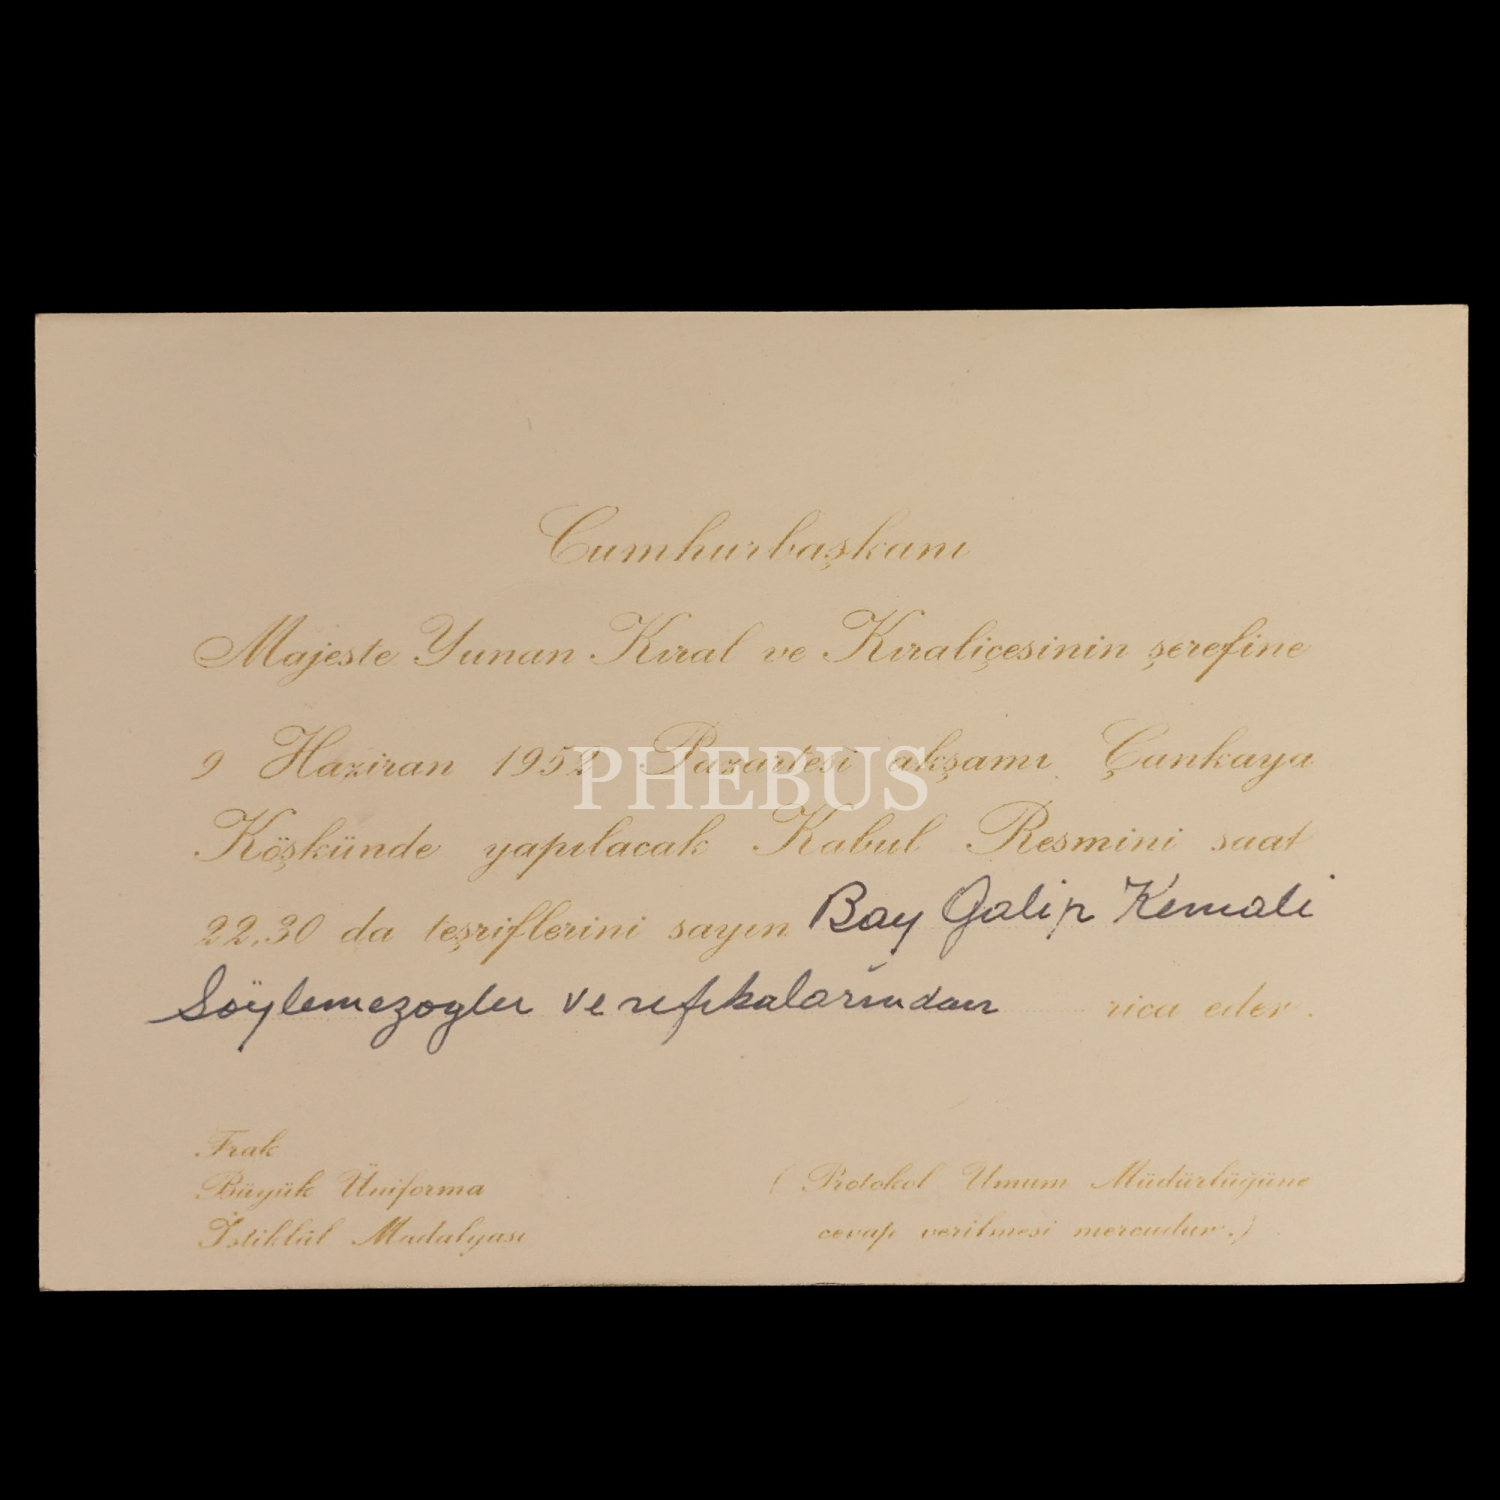 Cumhurbaşkanı
Majeste Yunan Kıral ve Kıraliçesinin şerefine
9 Haziran 1952 Pazartesi akşamı Çankaya
PHEBUS
Köşkünde yapılacak Kabul Resmini saat
22,30 da teşriflerini sayın Bay Galip Kemali
Söylemezoğlu ve refikalarından rica eder.
Frak
Büyük Üniforma
İstiklâl Madalyası
( Protokol Umum Müdürlüğüne
cevap verilmesi mercudur.)